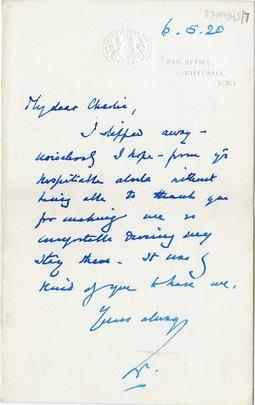 6.5.20
WAR OFFICE,
WHITEHALL,
S.W.1.
My dear Charlie,
I slipped away –
noiselessly I hope – from yr
hospitable abode without
being able to thank you
for making me so
comfortable during my
stay there – It was
kind of you to have me.
Yours always
W.